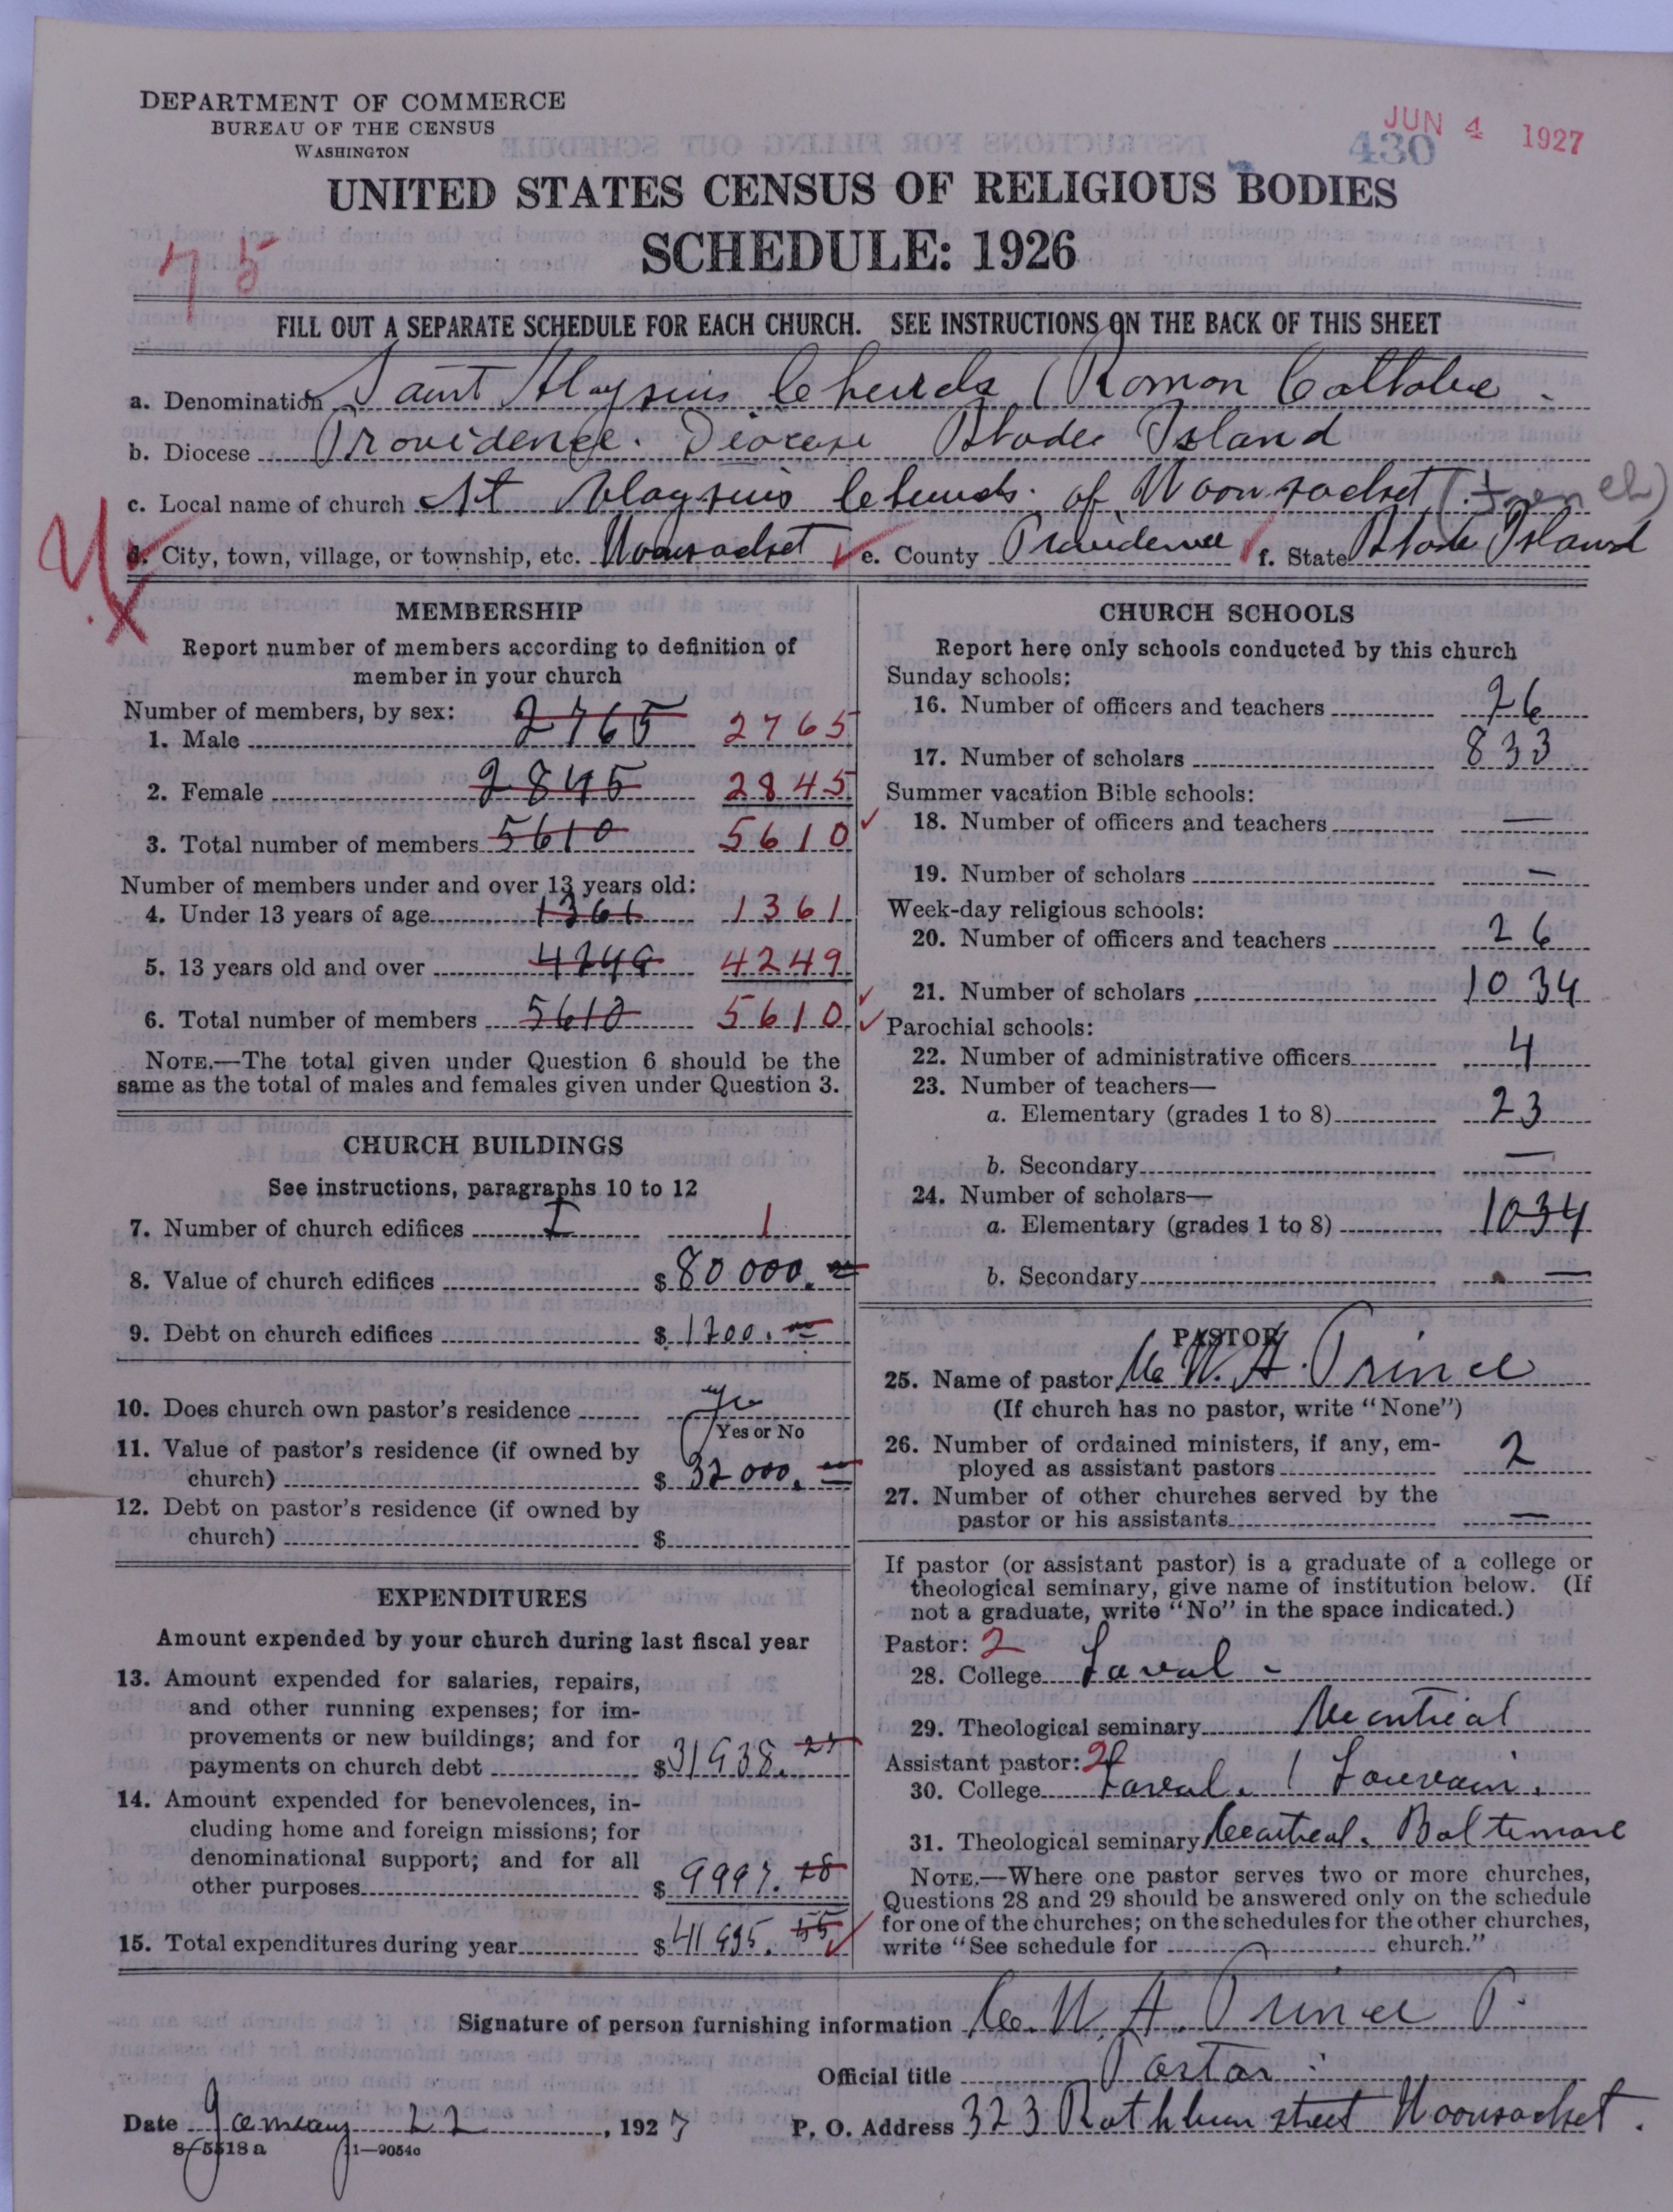 DEPARTMENT OF COMMERCE
BUREAU OF THE CENSUS
WASHINGTON
JUN 4 1927
430
UNITED STATES CENSUS OF RELIGIOUS BODIES
SCHEDULE: 1926
75
FILL OUT A SEPARATE SCHEDULE FOR EACH CHURCH. SEE INSTRUCTIONS ON THE BACK OF THIS SHEET
a. Denomination Saint Aloysius Church (Roman Catholic
b. Diocese Providence. Diocese Rhode Island
c. Local name of church St Aloysius Church. of Woonsocket (French)
d. City, town, village, or township, etc. Woonsocket e. County Providence f. State Rhode Island
MEMBERSHIP
Report number of members according to definition of
member in your church
Number of members, by sex:
1. Male 2765 2765
2. Female 2845 2845
3. Total number of members 5610 5610
Number of members under and over 13 years old:
4. Under 13 years of age 1361 1361
5. 13 years old and over 4249 4249
6. Total number of members 5610 5610
NOTE.—The total given under Question 6 should be the
same as the total of males and females given under Question 3.
CHURCH BUILDINGS
See instructions, paragraphs 10 to 12
7. Number of church edifices 1 1
8. Value of church edifices $ 80 000.
9. Debt on church edifices $ 1200.
10. Does church own pastor's residence yes
Yes or No
11. Value of pastor's residence (if owned by
church) $ 32 000.
12. Debt on pastor's residence (if owned by
church) $
EXPENDITURES
Amount expended by your church during last fiscal year
13. Amount expended for salaries, repairs,
and other running expenses; for im-
provements or new buildings; and for
payments on church debt $ 31938. 27
14. Amount expended for benevolences, in-
cluding home and foreign missions; for
denominational support; and for all
other purposes $ 9997. 28
15. Total expenditures during year $ 41935. 55
CHURCH SCHOOLS
Report here only schools conducted by this church
Sunday schools:
16. Number of officers and teachers 26
17. Number of scholars 833
Summer vacation Bible schools:
18. Number of officers and teachers —
19. Number of scholars —
Week-day religious schools:
20. Number of officers and teachers 26
21. Number of scholars 1034
Parochial schools:
22. Number of administrative officers 4
23. Number of teachers—
a. Elementary (grades 1 to 8) 23
b. Secondary —
24. Number of scholars—
a. Elementary (grades 1 to 8) 1034
b. Secondary —
PASTOR
25. Name of pastor W. A. Prince
(If church has no pastor, write "None")
26. Number of ordained ministers, if any, em-
ployed as assistant pastors 2
27. Number of other churches served by the
pastor or his assistants —
If pastor (or assistant pastor) is a graduate of a college or
theological seminary, give name of institution below. (If
not a graduate, write "No" in the space indicated.)
Pastor: 2
28. College Laval -
29. Theological seminary Montreal
Assistant pastor: 2
30. College Laval. Louvain.
31. Theological seminary Montreal. Baltimore
NOTE.—Where one pastor serves two or more churches,
Questions 28 and 29 should be answered only on the schedule
for one of the churches; on the schedules for the other churches,
write "See schedule for church."
Signature of person furnishing information W. A. Prince P.
Official title Pastor
Date January 22, 1927 P. O. Address 323 Rathbun street Woonsocket.
8-5518 a 11—9054c